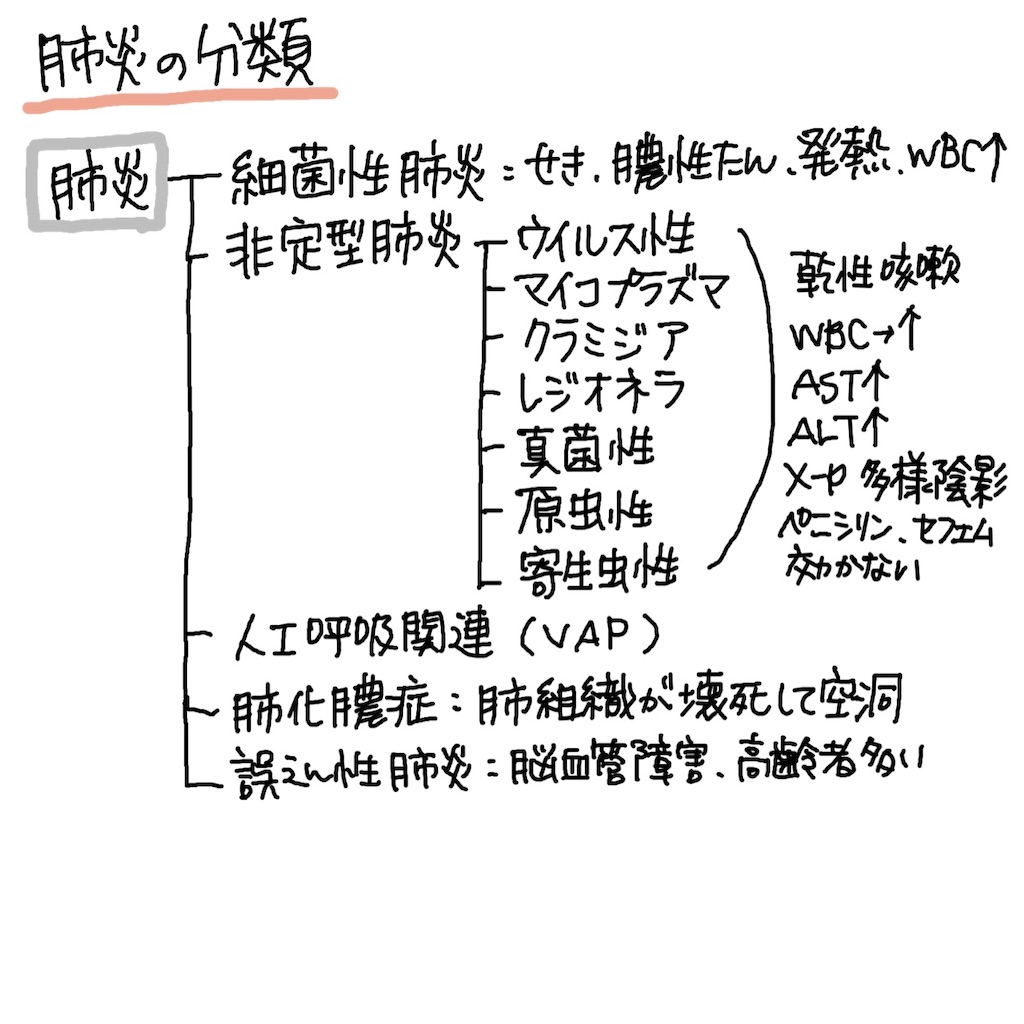 肺炎の分類
肺炎
細菌性肺炎：せき、膿性たん、発熱、WBC↑
非定型肺炎
ウイルス性
マイコプラズマ
クラミジア
レジオネラ
真菌性
原虫性
寄生虫性
乾性咳嗽
WBC→↑
AST↑
ALT↑
X-P 多様陰影
ペニシリン、セフェム
効かない
人工呼吸関連（VAP）
肺化膿症：肺組織が壊死して空洞
誤えん性肺炎：脳血管障害、高齢者多い